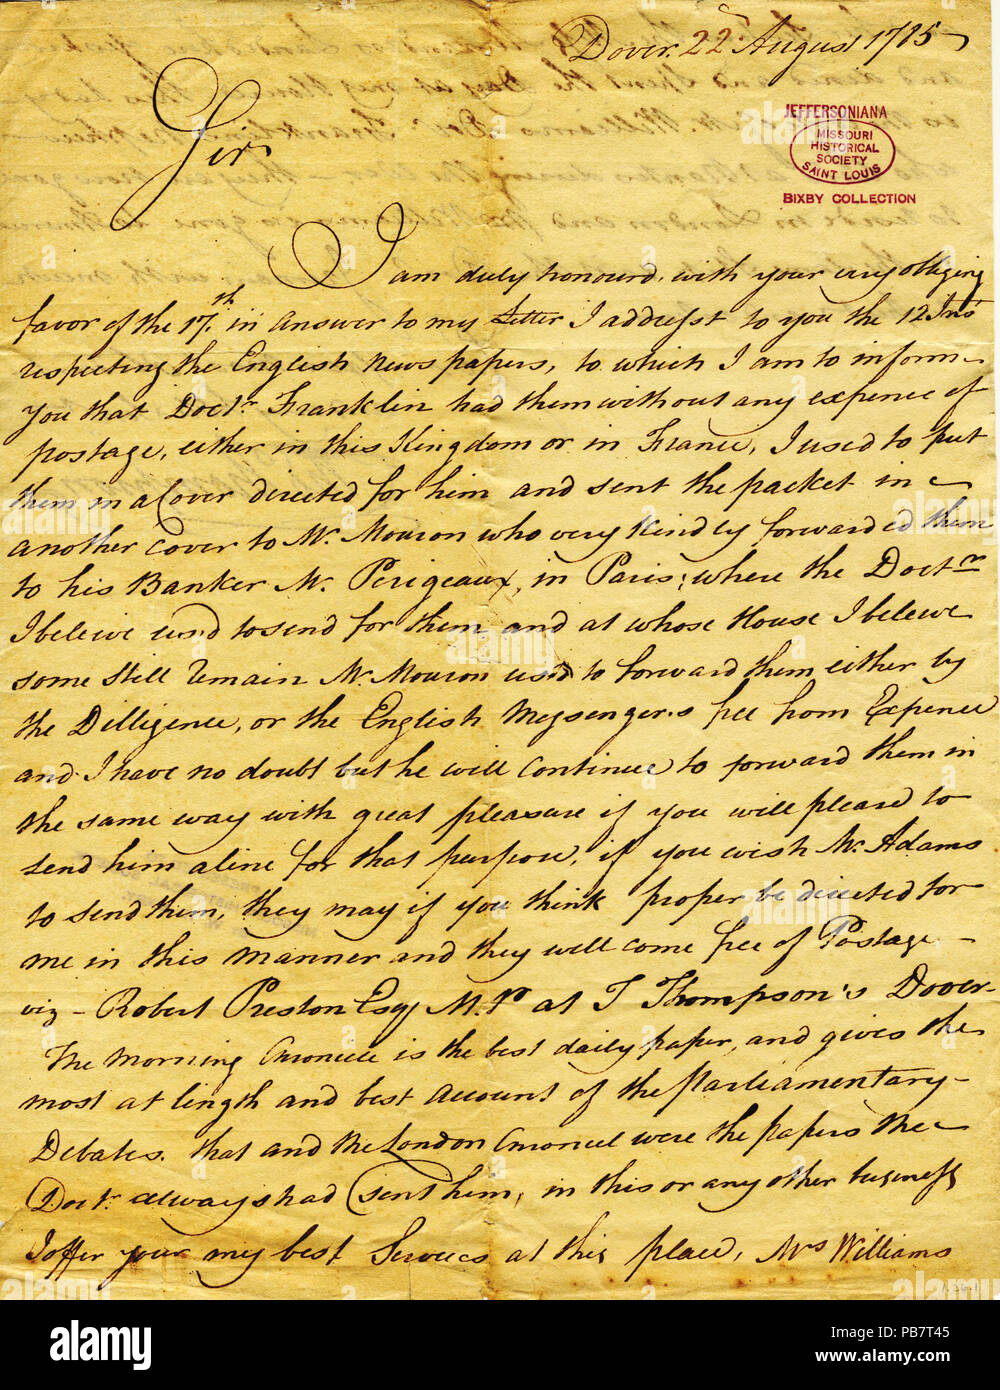 Dover. 22d August 1785
JEFFERSONIANA
MISSOURI
HISTORICAL
SOCIETY
SAINT LOUIS
BIXBY COLLECTION
Sir
I am duly honourd. with your very obligeing
favor of the 17th. in answer to my Letter I addresst to you the 12 Ins
respecting the English News papers, to which I am to inform
you that Doctr. Franklin had them without any expence of
postage, either in this Kingdom or in France, I used to put
them in a Cover directed for him and sent the packet in
another cover to Mr. Mouron who very kindly forwarded them
to his Banker Mr. Perigeaux, in Paris; where the Doctr
I beleive used to send for them and at whose House I beleive
some still remain Mr. Mouron used to forward them either by
the Dilligence, or the English Messengers free from Expence
and I have no doubt but he will continue to forward them in
the same way with great pleasure if you will please to
send him a line for that purpose, if you wish Mr. Adams
to send them, they may if you think proper be directed for
me in this manner and they will come free of Postage
viz - Robert Preston Esqr M.P at T Thompson's Dover
The Morning Cronicle is the best daily paper, and gives the
most at length and best account of the Parliamentary
Debates. that and the London Cronicel were the papers the
Doctr. always had I sent him, in this or any other business
I offer you my best Services at this place, Mrs Williams
alamy
alamy stock photo
PB7T45
www.alamy.com